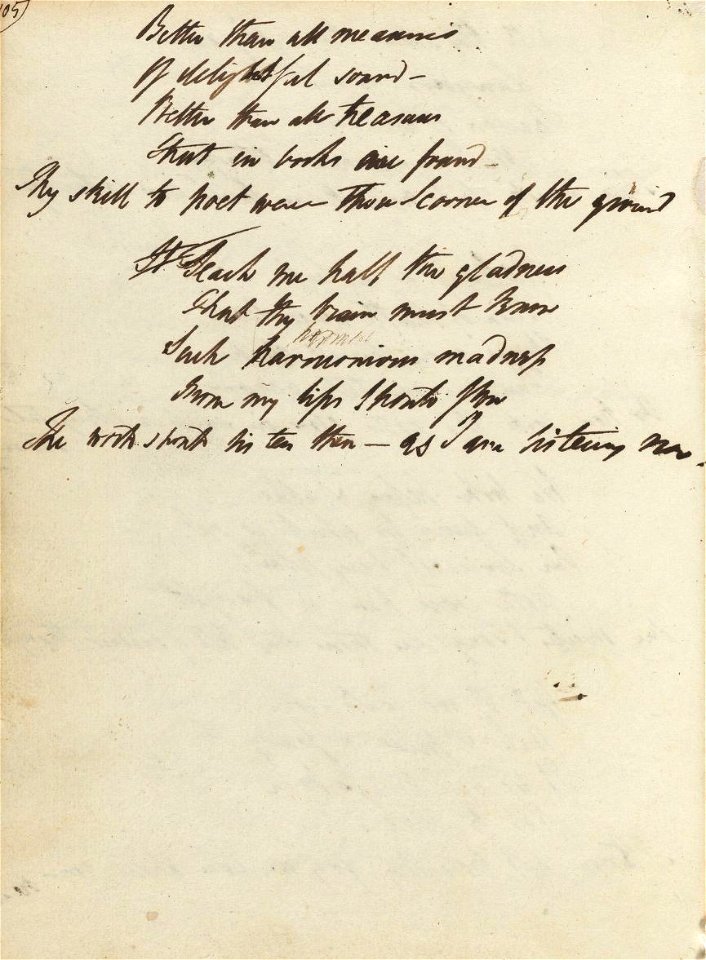 105
Better than all measures
Of delightful sound –
Better than all treasures
That in books are found –
Thy skill to poet were thou Scorner of the ground
Teach me half the gladness
That thy brain must know
Such harmonious madness
From my lips should flow
The world should listen then – as I am listening now.